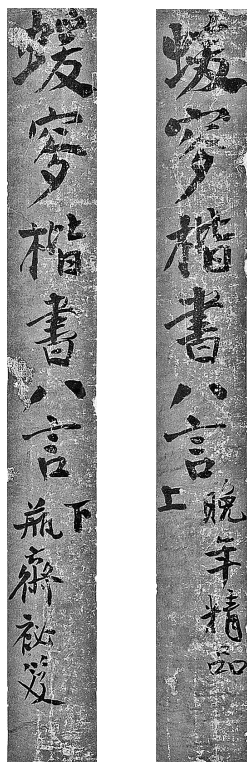 蝯叜楷書八言
上
晚年精品
蝯叜楷書八言
下
瓶齋祕笈